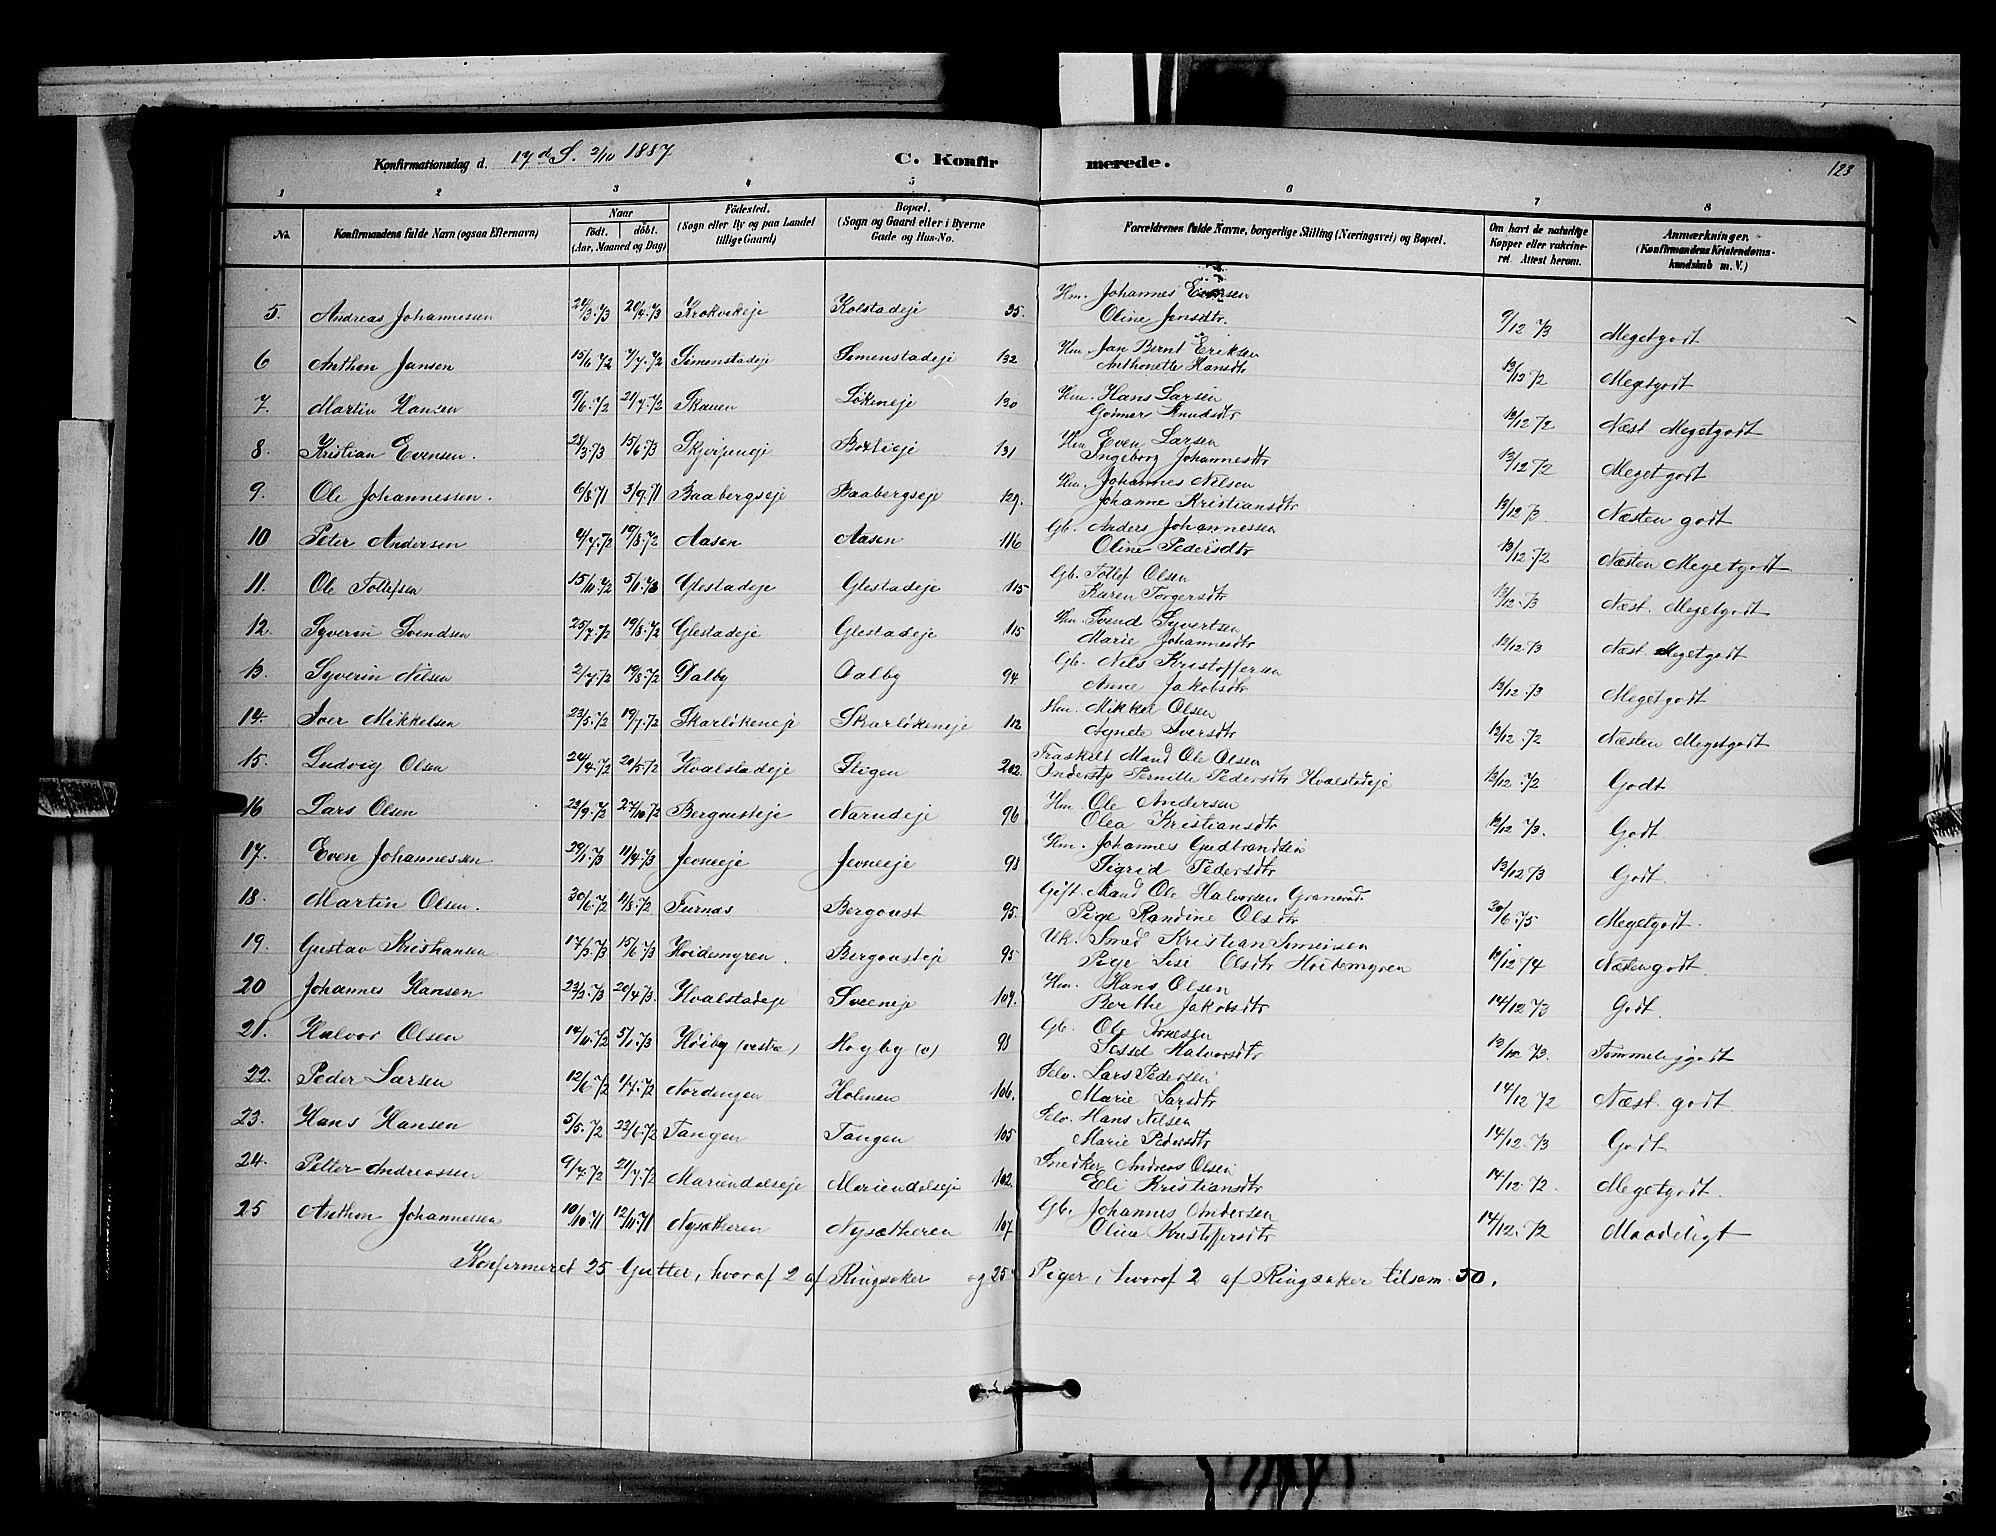 Konfirmationsdag d. 17d S. 2/10 1887 C. Konfirmerede. 123
1 2 3 4 5 6 7 8
No. Konfirmandens fulde Navn (ogsaa Efternavn) Naar födt. döbt. (Aar, Maaned og Dag) Födested. (Sogn eller By og paa Landet tillige Gaard) Bopæl. (Sogn og Gaard eller i Byerne Gade og Hus-No. Forældrenes fulde Navne, borgerlige Stilling (Næringsvei) og Bopæl. Om havt de naturlige Kopper eller vakcineret. Attest herom. Anmærkninger. (Konfirmandens Kristendomskundskab m. V.)
5. Andreas Johannesen 20/4.73 Krokvikeje Kolstadeje 35. Hm. Johannes Evensen
Oline Jensdtr. 9/12 73 Megetgodt
6 Anthon Jansen 15/6.72 7/7.72 Simenstadeje Simenstadeje 132 Hm. Jan Bernt Eriksen
Anthonette Hansdtr 13/12 72 Megetgodt
7. Martin Hansen 9/6.72 21/7.72 Skauen Løkeneje 130 Hm. Hans Larsen
Knudsdtr 12/12 72 Næst Megetgodt
8. Kristian Evensen. 28/3.73 15/6.73 131 Hm Even Larsen
Ingeborg Johannesdtr 13/12 72 Megetgodt
9. Ole Johannessen. 6/8.71 3/9.71 Baabergseje Baabergseje 129. Hm. Johannes Nilsen
Johanne Kristiansdtr 13/12 73. Næsten godt
10 Peter Andersen 4/7.72 19/8.72 Aasen Aasen 116 Gb. Anders Johannessen
Oline Pedersdtr 13/12.72 Næsten Megetgodt
11. Ole Tollefsen 15/11.72 5/1.73 Glestadeje Glestadeje 115 Gb. Tollef Olsen
Karen Torgersdtr 13/12.73 Næst. Megetgodt
12. Syverin Svendsen 25/7.72 19/8.72 Glestadeje Glestadeje 115 Hm. Svend Syvertsen
Marie Johannesdtr 12/12.73 Næst. Megetgodt
13. Syverin Nilsen 2/7.72 19/8.72 Dalby Dalby 94 Gb. Nils Kristoffersen
Anne Jakobsdtr 13/12.73 Megetgodt
14. Iver Mikkelsen 23/5.72 19/7.72 Skarløkeneje Skarløkeneje 112 Hm. Mikkel Olsen
Agnete Iversdtr 13/12.72 Næsten Megetgodt
15. Ludvig Olsen 24/4.72 20/5.72 Hvalstadeje Stigen 202. Fraskelt Mand Ole Olsen
Inderstp Pernille Pedersdtr Hvalstadeje 13/12.72 Godt
16 Lars Olsen 23/9.72 27/10.72 Bergousteje Narudeje 96 Hm. Ole Andersen
Olea Kristiansdtr 12/12 73. Godt.
17. Even Johannessen 29/1.73 11/4.73 Jevneeje Jevneeje 98 Hm. Johannes Gudbrandsen
Sigrid Pedersdtr 13/12 73 Godt.
18. Martin Olsen. 30/6.72 11/8.72 Furnæs Bergoust 95. Gift Mand Ole Halvorsen
Pige Randine Olsdtr 30/6.75 Megetgodt.
19. Gustav Kristiansen 14/3.73 15/6.73 Hvidemyren. Bergousteje 95 Uk. Smed Kristian Simensen
Pige Lisi Olsdtr Hvidemyren 12/12 74 Næsten godt.
20 Johannes Hansen 23/3.73 20/4.73 Hvalstadeje Sveeneje 109. Hm. Hans Olsen
Berthe Jakobsdtr 14/12 73 Godt.
21. Halvor Olsen 14/11.72 5/1.73 Høiby (vestre) Høyby (v) 98 Gb. Ole
Sessel Halvorsdtr 13/12.73. Temmeliggodt
22. Peder Larsen 12/6.72 1/7.72 Nordengen Holmen 106. Selv. Lars Pedersen
Marie Larsdtr 14/12 72 Næst. godt
23. Hans Hansen 5/5.72 22/6.72 Tangen Tangen 105 Selv. Hans Nilsen
Marie Pedersdtr 14/12.73 Godt
24. Petter Andreassen 9/4.72 21/7.72 Mariendalseje Mariendalseje 102. Snedker Andreas Olsen
Eli Kristiansdtr 14/12.72. Megetgodt.
25 Anthon Johannessen 10/10.71 12/11.71 Nysætheren Nysætheren 107 Gb. Johannes Andersen
Olina Kristoffersdtr 14/12.72 Maadeligt
Konfirmeret 25 Gutter, hvoraf 2 af Ringsaker og 25 Piger, hvoraf 2 af Ringsaker tilsam. 50.